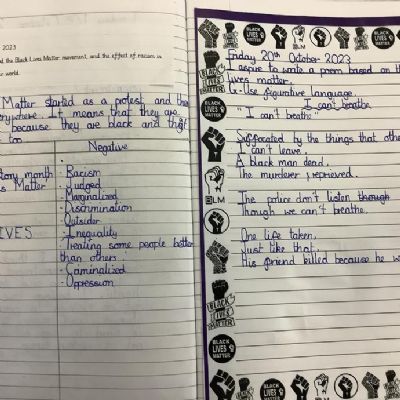 2023
d the Black Lives Matter movement, and the effect of racism in
r world.
Matter started as a protest and the
rywhere. It means that they are
because they are black and that
too
Negative
tory month
s Matter"
IVES
· Racism
· Judged
· Marginalized
· Discrimination
· Outsider
· Inequality
· Treating some people better
than others
· Caminalized
· Opression
BLACK LIVES MATTER
BLM
Friday 20th October 2023
I aspire to write a poem based on th
lives matter.
G-Use figurative language.
I can't breathe
"I can't breathe"
Suffocated by the things that othe
I can't leave.
A black man dead.
The murderer reprieved.
The police don't listen though
Though we can't breathe.
One life taken,
Just like that.
His friend killed because he w
BLACK LIVES MATTER
BLM
BLACK LIVES MATTER
BLACK LIVES MATTER